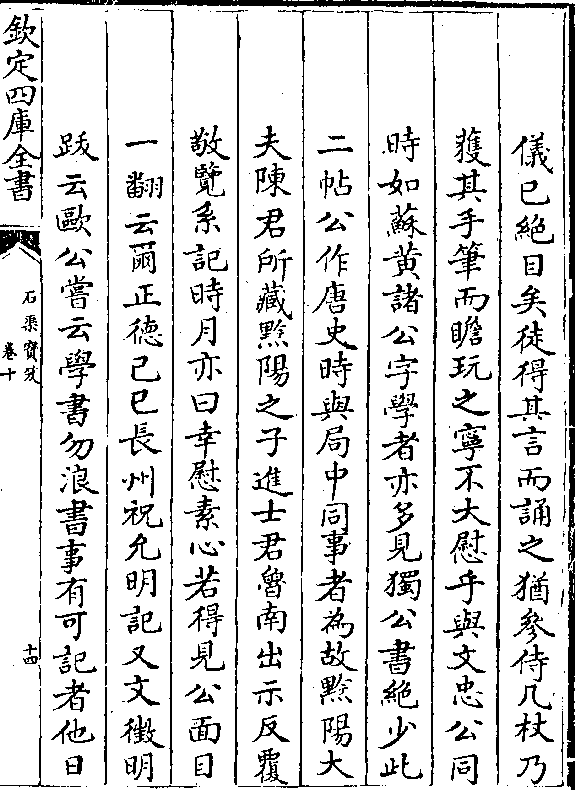 儀已絶目矣徒得其言而誦之猶參侍几杖乃
獲其手筆而瞻玩之寧不大慰乎與文忠公同
時如蘇黄諸公字學者亦多見獨公書絶少此
二帖公作唐史時與局中同事者為故黟陽大
夫陳君所藏黟陽之子進士君魯南出示反覆
敬覽系記時月亦曰幸慰素心若得見公面目
一翻云爾正徳己巳長州祝允明記又文徴明
跋云歐公嘗云學書勿浪書事有可記者他日
欽定四庫全書
石渠寳笈
卷十
十四